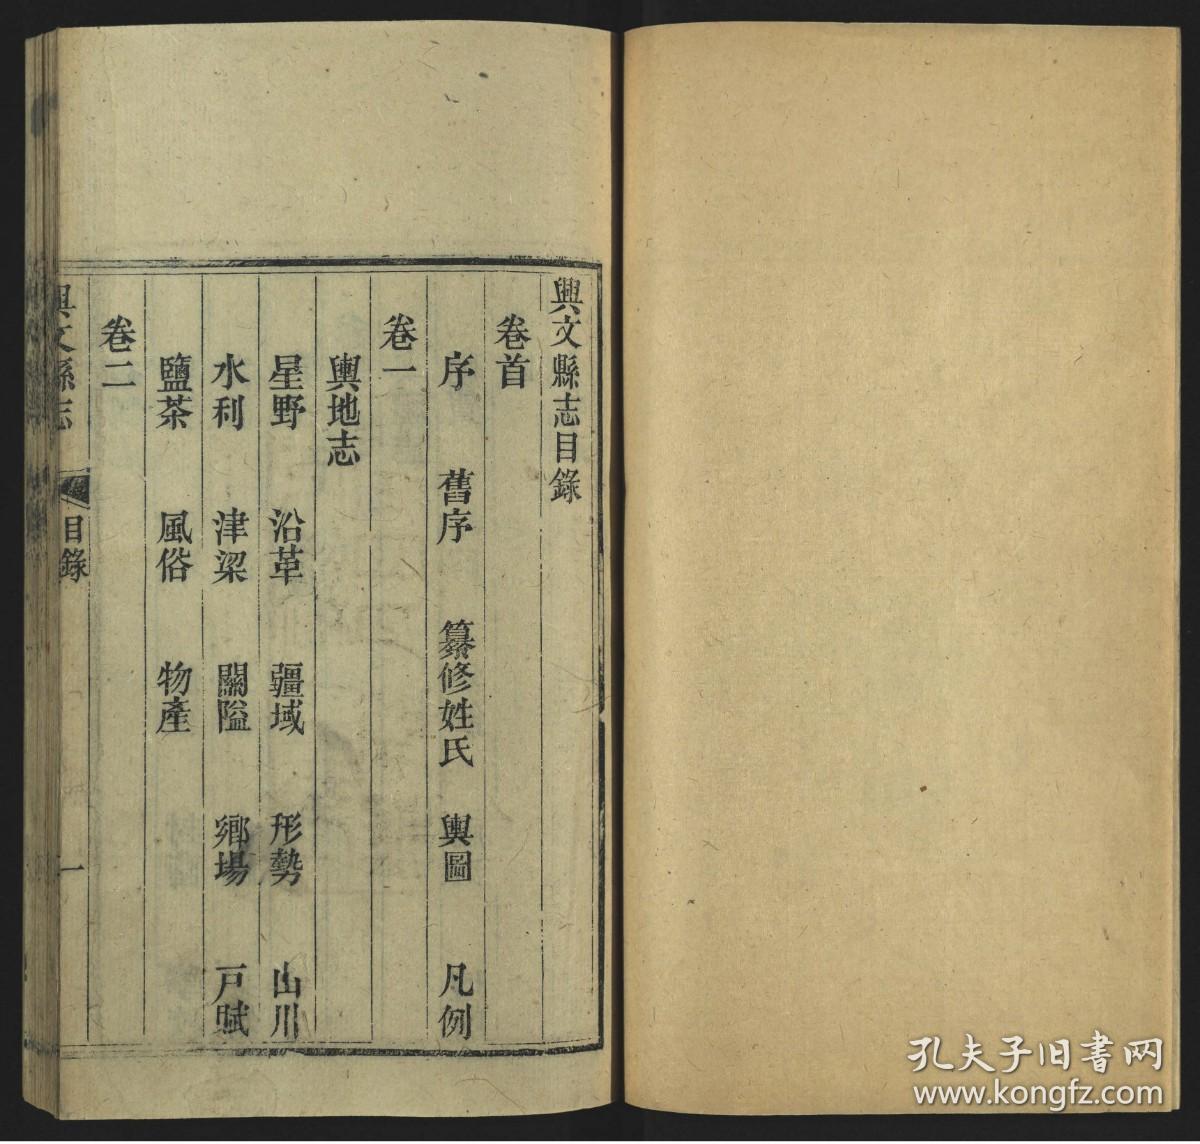 興文縣志目錄
卷首
序 舊序 纂修姓氏 輿圖 凡例
卷一
輿地志
星野 沿革 疆域 形勢 山川
水利 津梁 關隘 鄉場 戸賦
鹽茶 風俗 物產
卷二
興文縣志 目錄 一
孔夫子旧書网
www.kongfz.com